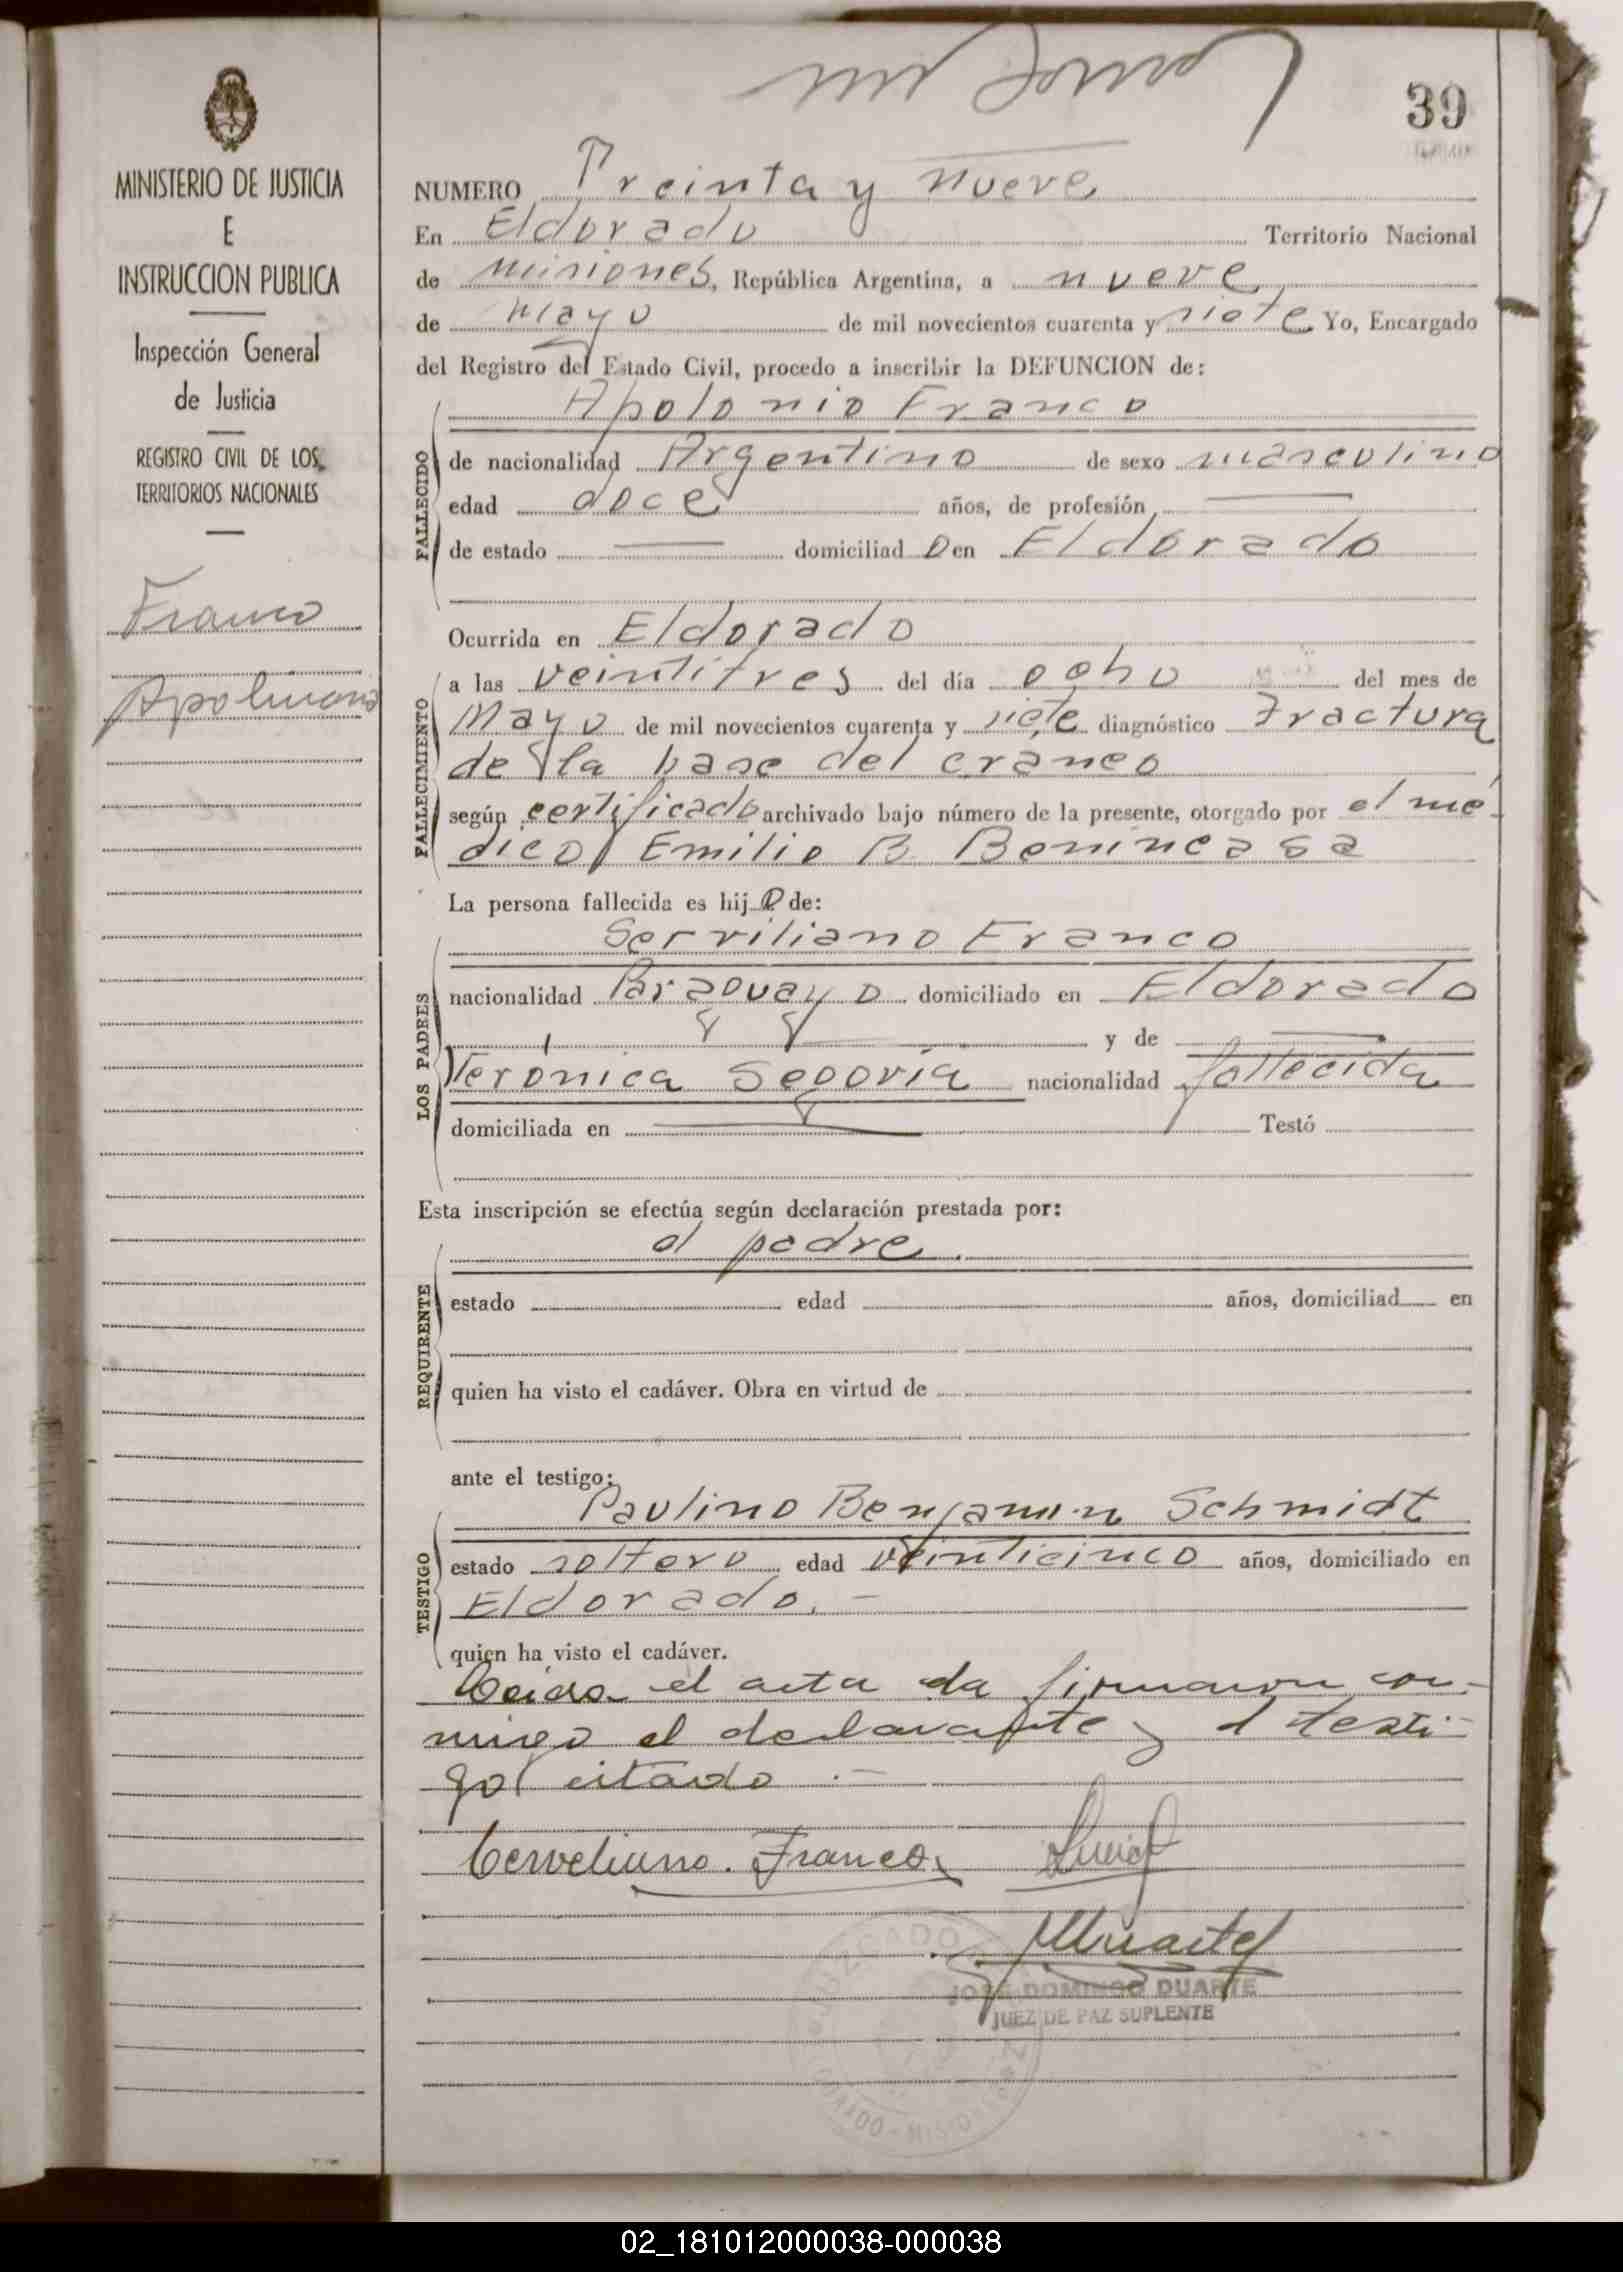 39
MINISTERIO DE JUSTICIA
E
INSTRUCCION PUBLICA
Inspección General
de Justicia
REGISTRO CIVIL DE LOS
TERRITORIOS NACIONALES
Franco
NUMERO Treinta y nueve
En Eldorado Territorio Nacional
de Misiones, República Argentina, a nueve
de Mayo de mil novecientos cuarenta y siete Yo, Encargado
del Registro del Estado Civil, procedo a inscribir la DEFUNCION de:
FALLECIDO
Apolonio Franco
de nacionalidad Argentino de sexo masculino
edad doce años, de profesión
de estado domiciliad o en Eldorado
Ocurrida en Eldorado
FALLECIMIENTO
a las veintitres del día ocho del mes de
Mayo de mil novecientos cuarenta y siete diagnóstico Fractura
de la base del craneo
según certificado archivado bajo número de la presente, otorgado por el mé-
dico Emilio B. Benincasa
La persona fallecida es hij o de:
LOS PADRES
Serviliano Franco
nacionalidad Paraguayo domiciliado en Eldorado
y de
Verónica Segovia nacionalidad fallecida
domiciliada en Testó
Esta inscripción se efectúa según declaración prestada por:
REQUIRENTE
el padre.
estado edad años, domiciliad en
quien ha visto el cadáver. Obra en virtud de
ante el testigo:
TESTIGO
Paulino Benjamin Schmidt
estado soltero edad veinticinco años, domiciliado en
Eldorado.-
quien ha visto el cadáver.
Leida el acta la firmaron con-
migo el declarante y el testi-
go citado.-
Cerveliano. Franco
JOSE DOMINGO DUARTE
JUEZ DE PAZ SUPLENTE
JUZGADO
02_181012000038-000038